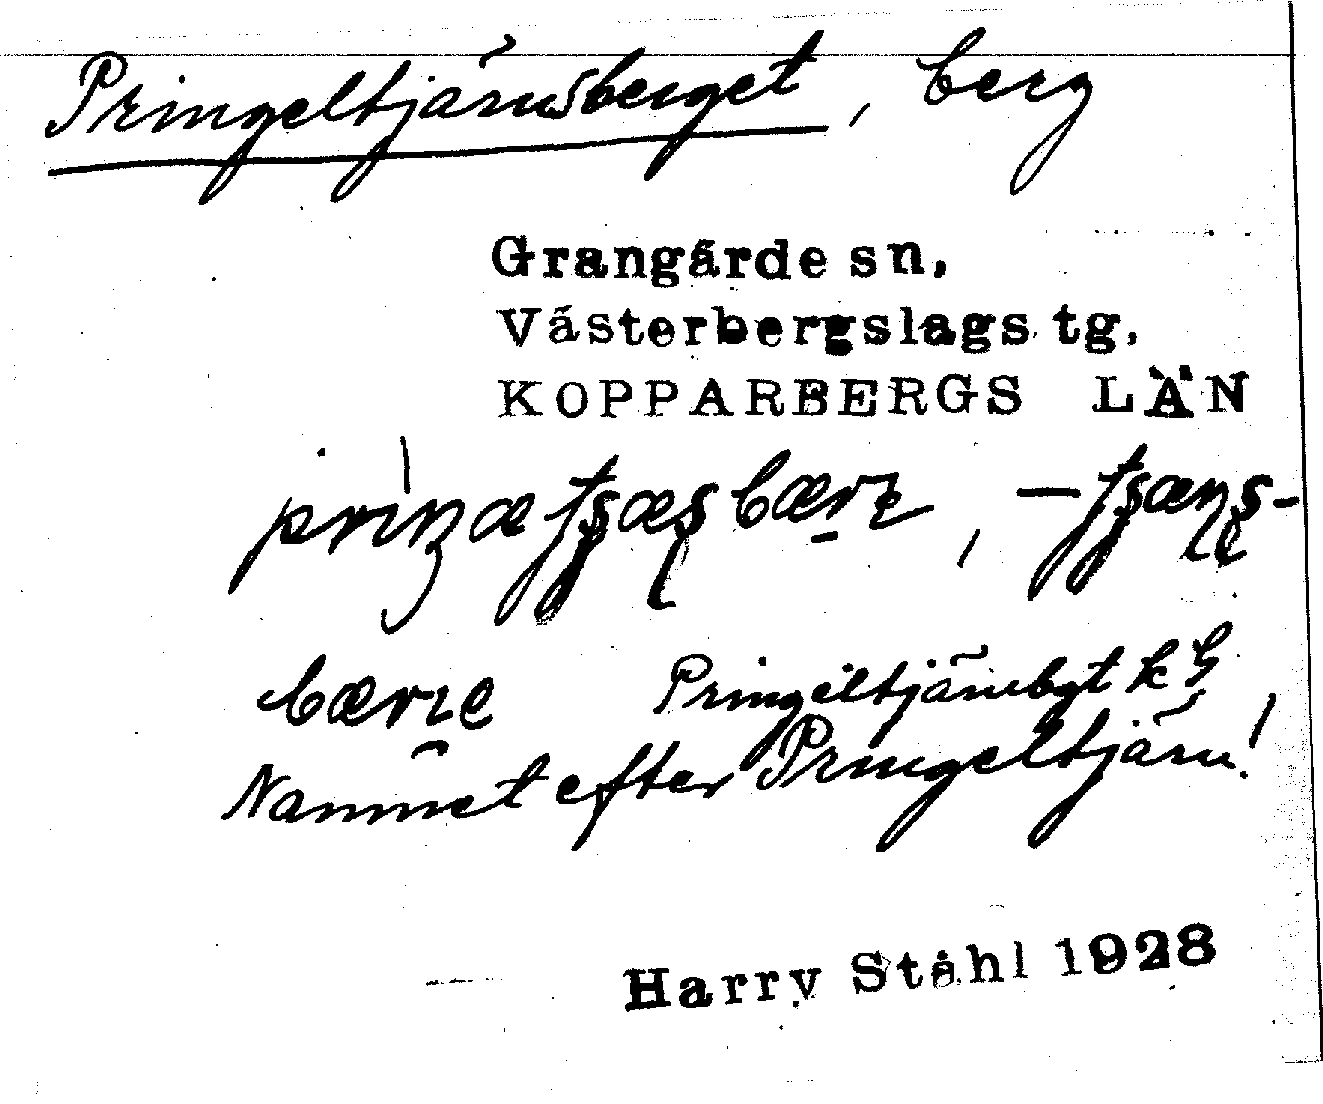 Pringeltjärnsberget, berg
Grangärde sn,
Västerbergslags tg.
KOPPARBERGS LÄN
bærɩe Pringeltjärnbgt k
Namnet efter Pringeltjärn!
Harry Ståhl 1928